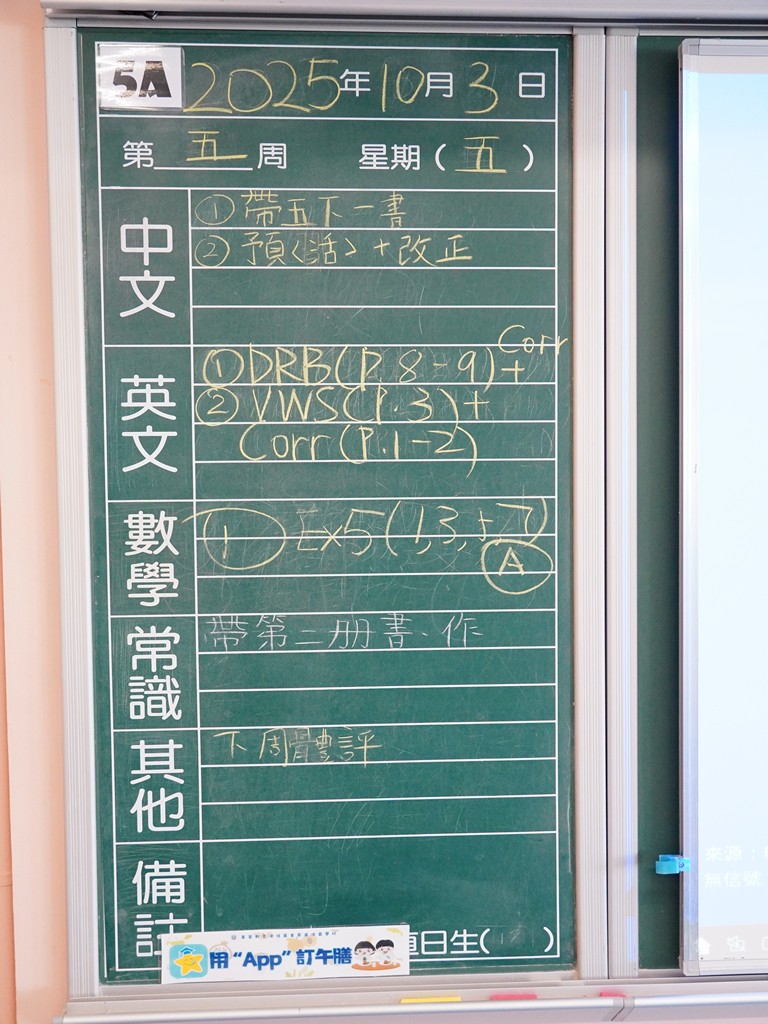 5A 2025年10月3日
第五周 星期(五)
中文
①帶五下一書
②預〈話〉+改正
英文
①DRB(P.8-9)+Corr
②VWS(P.3)+
Corr(P.1-2)
數學
① Ex5(1,3,5,7)
A
常識
帶第二册書、作
其他
下周體評
備註
直日生( )
用“App”訂午膳
來源:
無信號